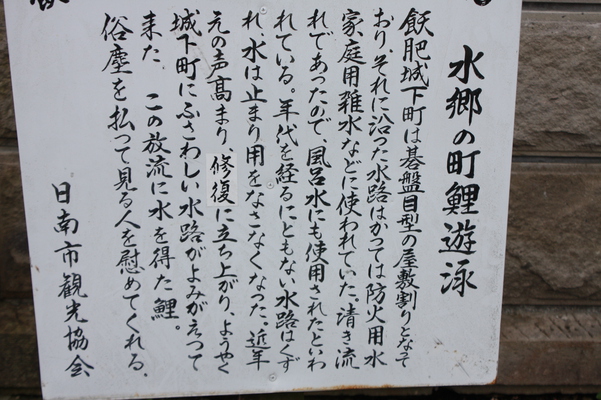 水郷の町鯉遊泳
飫肥城下町は碁盤目型の屋敷割りとなって
おり、それに沿った水路はかつては防火用水
家庭用雑水などに使われていた。清き流
れであったので、風呂水にも使用されたといわ
れている。年代を経るにともない水路はくず
れ、水は止まり用をなさなくなった。近年
元の声高まり、修復に立ち上がり、ようやく
城下町にふさわしい水路がよみがえって
来た。この放流に水を得た鯉。
俗塵を払って見る人を慰めてくれる。
日南市観光協会